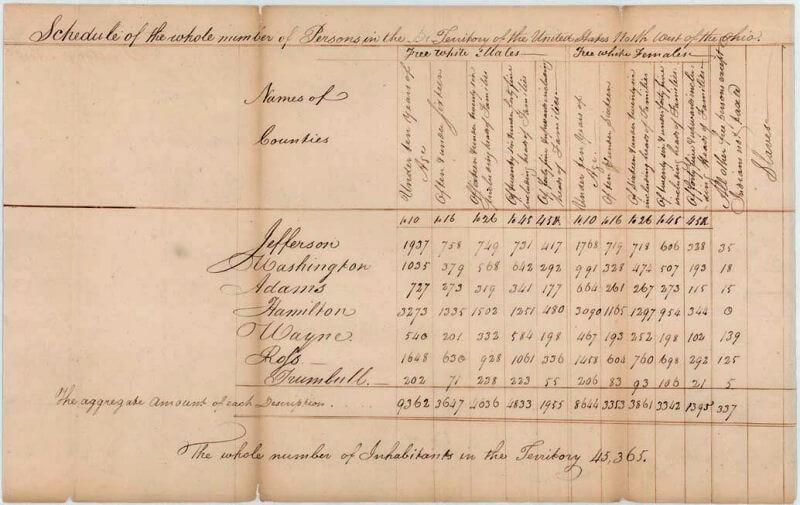 Schedule of the whole number of Persons in the Territory of the United States North West of the Ohio.
Free white Males Free white Females
Names of
Counties
Under ten Years of Age
Of ten & under sixteen
Of sixteen & under twenty six including heads of Families
Of twenty six & under forty five including heads of Families
Of forty five & upwards including heads of Families
Under ten Years of Age
Of ten & under Sixteen
Of sixteen & under twenty six including heads of Families
Of twenty six & under forty five including heads of Families
Of forty five & upwards including Heads of Families
All other free persons except Indians not taxed
Slaves
to 10 to 16 to 26 to 45 45 & to 10 to 16 to 26 to 45 45 &
Jefferson 1937 758 749 731 417 1768 719 718 606 328 35
Washington 1035 379 568 642 292 991 328 474 507 193 18
Adams 727 273 319 341 177 664 261 267 273 115 15
Hamilton 3273 1335 1502 1251 480 3090 1165 1297 954 344 0
Wayne 540 201 332 584 198 467 193 252 198 102 139
Ross 1648 630 928 1061 336 1458 604 760 698 292 125
Trumbull 202 71 238 223 55 206 83 93 106 21 5
The aggregate amount of each Description. 9362 3647 4636 4833 1955 8644 3353 3861 3342 1395 337
The whole number of Inhabitants in the Territory 45,365.